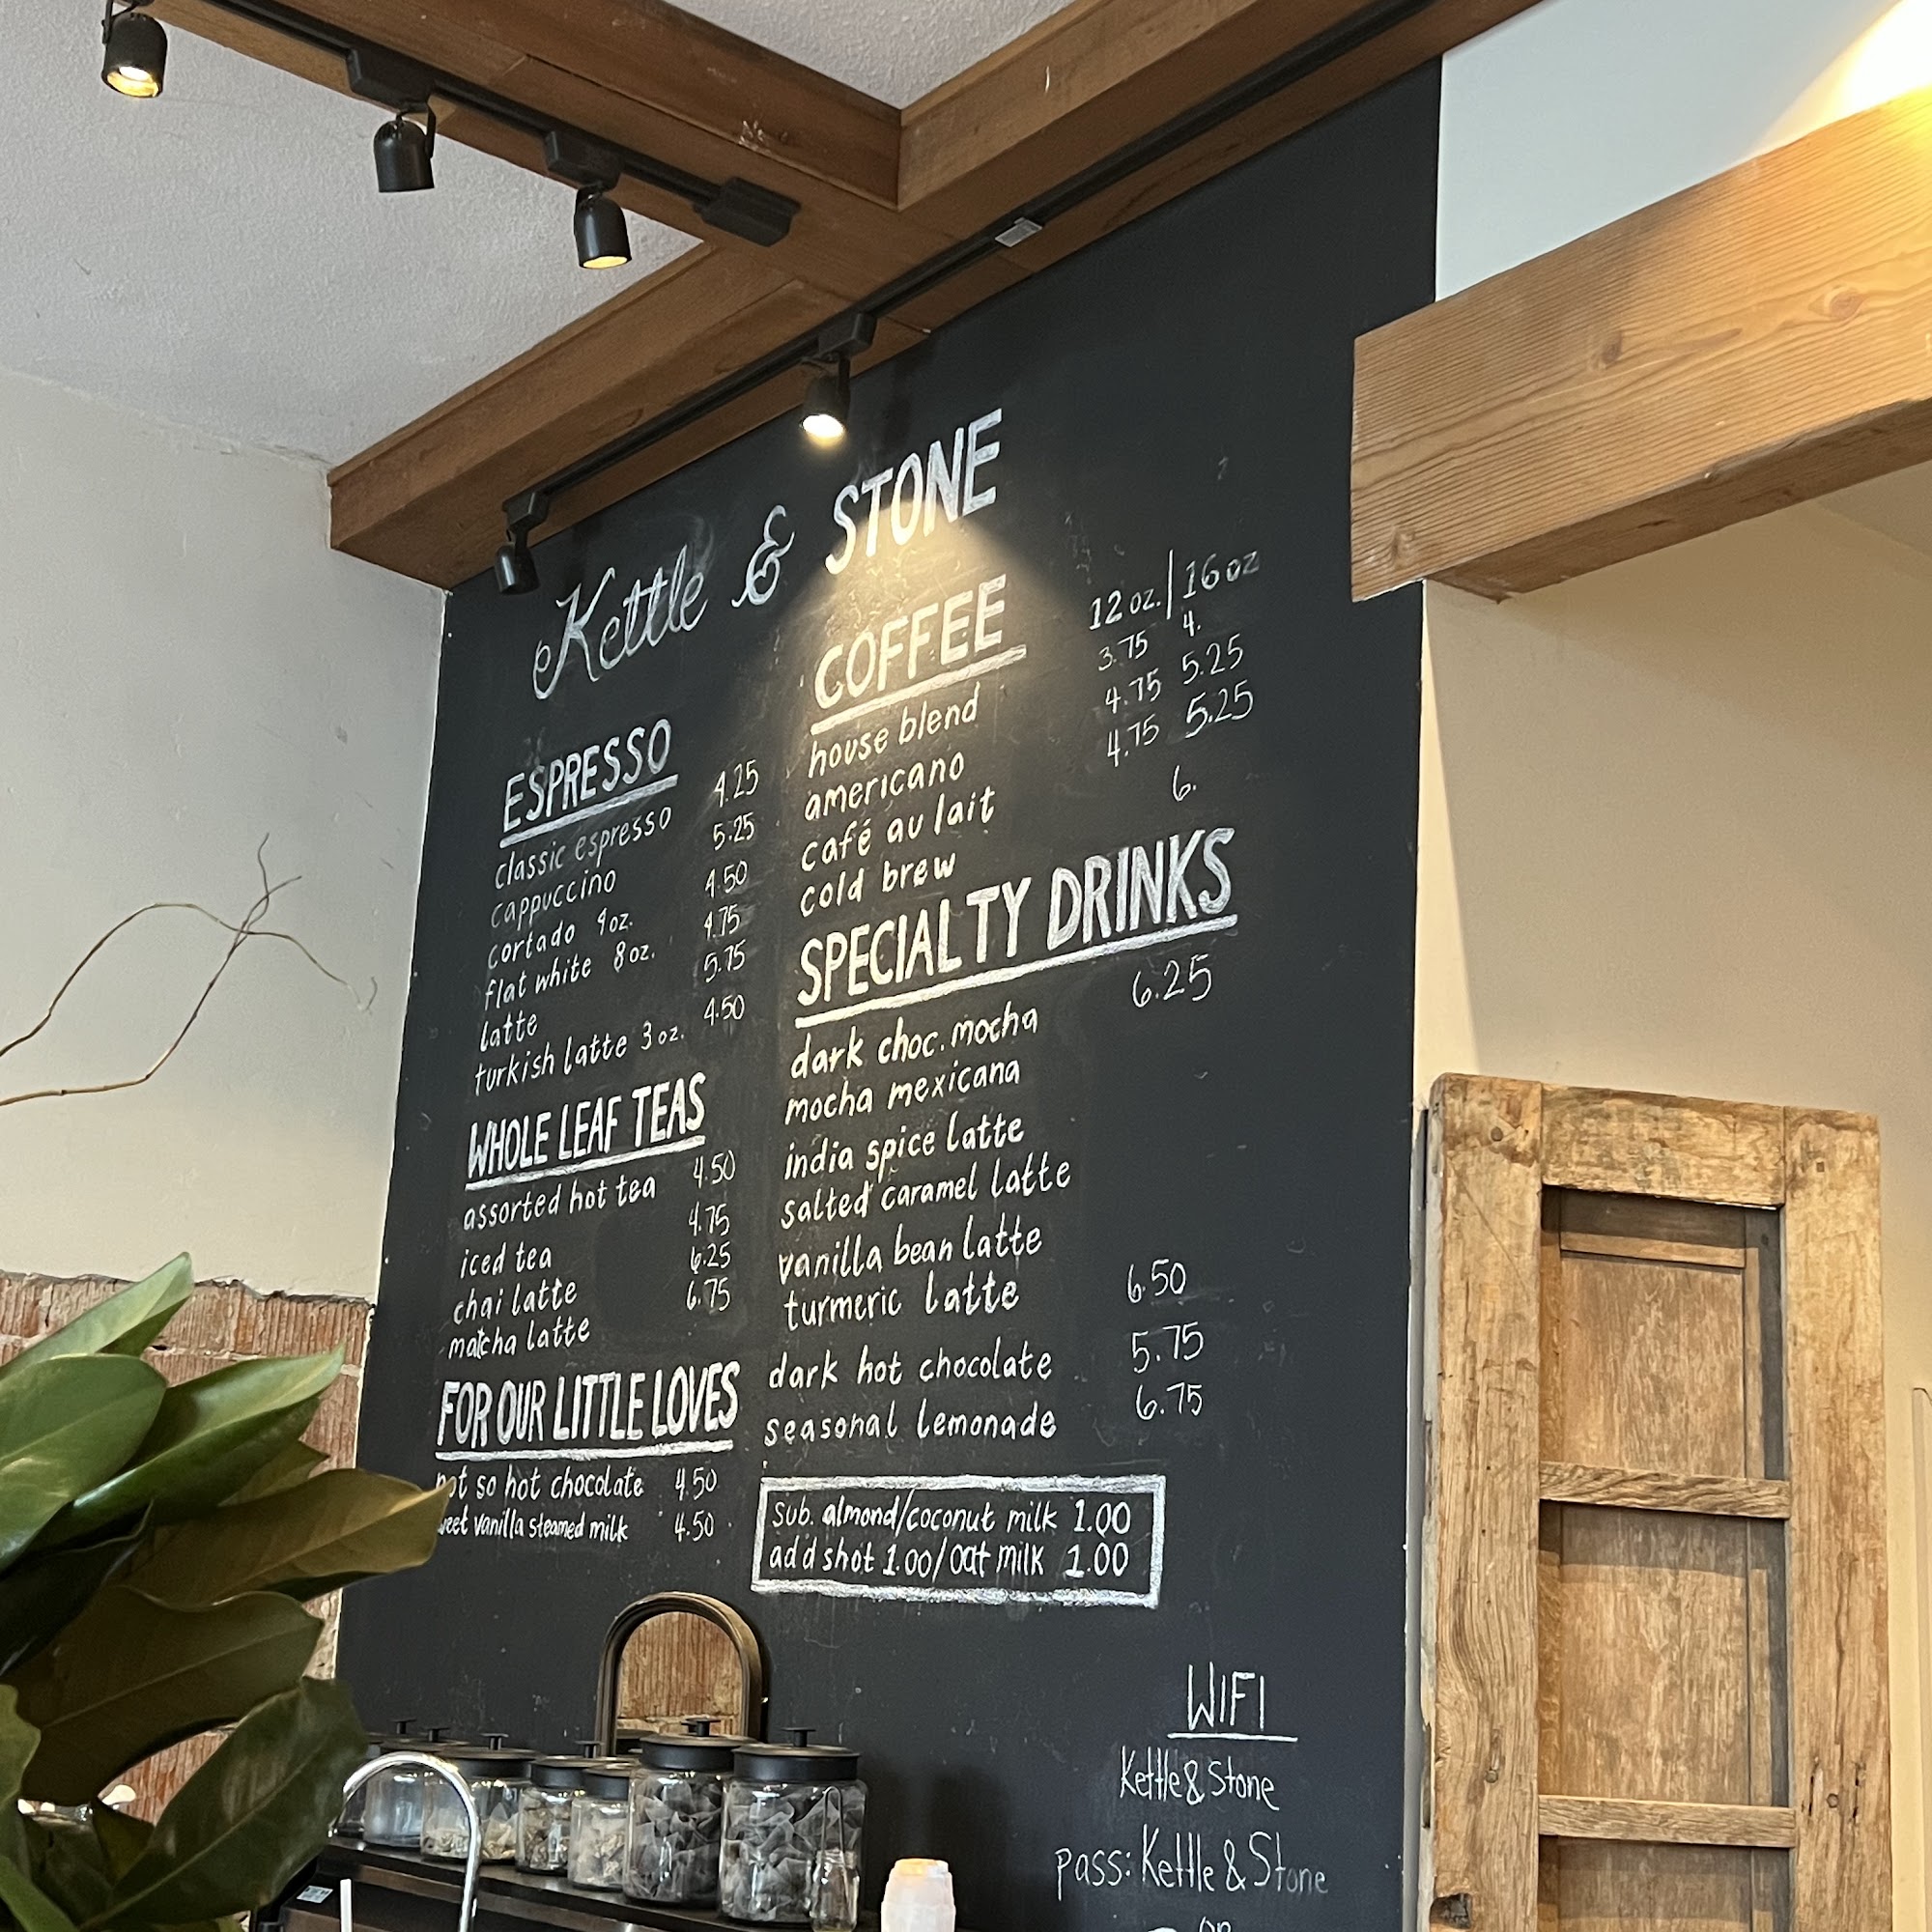 Kettle & STONE
ESPRESSO
classic espresso 4.25
cappuccino 5.25
cortado 4oz. 4.50
flat white 8oz. 4.75
latte 5.75
turkish latte 3oz. 4.50
WHOLE LEAF TEAS
assorted hot tea 4.50
iced tea 4.75
chai latte 6.25
matcha latte 6.75
FOR OUR LITTLE LOVES
not so hot chocolate 4.50
vanilla steamed milk 4.50
COFFEE 12 oz. | 16 oz
house blend 3.75 4.
americano 4.75 5.25
café au lait 4.75 5.25
cold brew 6.
SPECIALTY DRINKS
dark choc. mocha 6.25
mocha mexicana
india spice latte
salted caramel latte
vanilla bean latte
turmeric latte 6.50
dark hot chocolate 5.75
seasonal lemonade 6.75
Sub. almond/coconut milk 1.00
add shot 1.00/oat milk 1.00
WIFI
Kettle & Stone
pass: Kettle & Stone